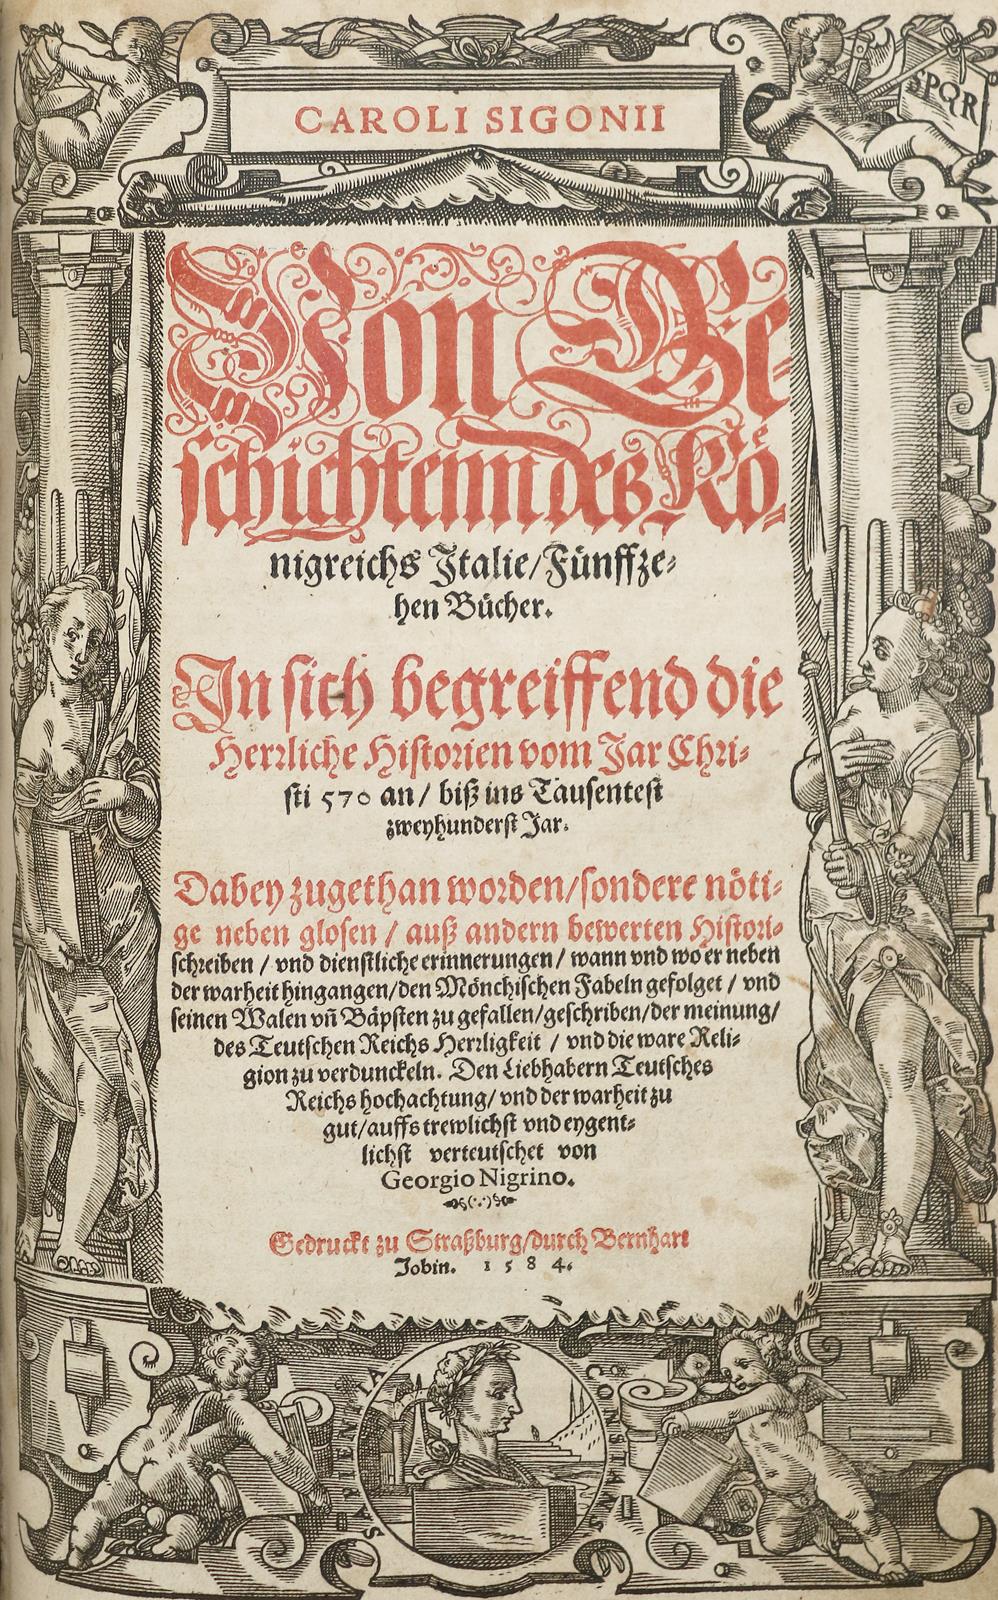 CAROLI SIGONII
SPQR
Von Ge-
schichtenn des Kö-
nigreichs Italie/Fünffze-
hen Bücher.
In sich begreiffend die
Herrliche Historien vom Jar Chri-
sti 570 an/ biß ins Tausentest
zweyhunderst Jar.
Dabey zugethan worden/sondere nöti-
ge neben glosen / auß andern bewerten Histori-
schreiben / vnd dienstliche erinnerungen / wann vnd wo er neben
der warheit hingangen/den Mönchischen Fabeln gefolget / vnd
seinen Walen vñ Bäpsten zu gefallen/geschriben/der meinung/
des Teutschen Reichs Herrligkeit / vnd die ware Reli-
gion zu verdunckeln. Den Liebhabern Teutsches
Reichs hochachtung/ vnd der warheit zu
gut/auffs trewlichst vnd eygent-
lichst verteutschet von
Georgio Nigrino.
Gedruckt zu Straßburg/durch Bernhart
Jobin. 1584.
SAPIENTIA
CONSTANS